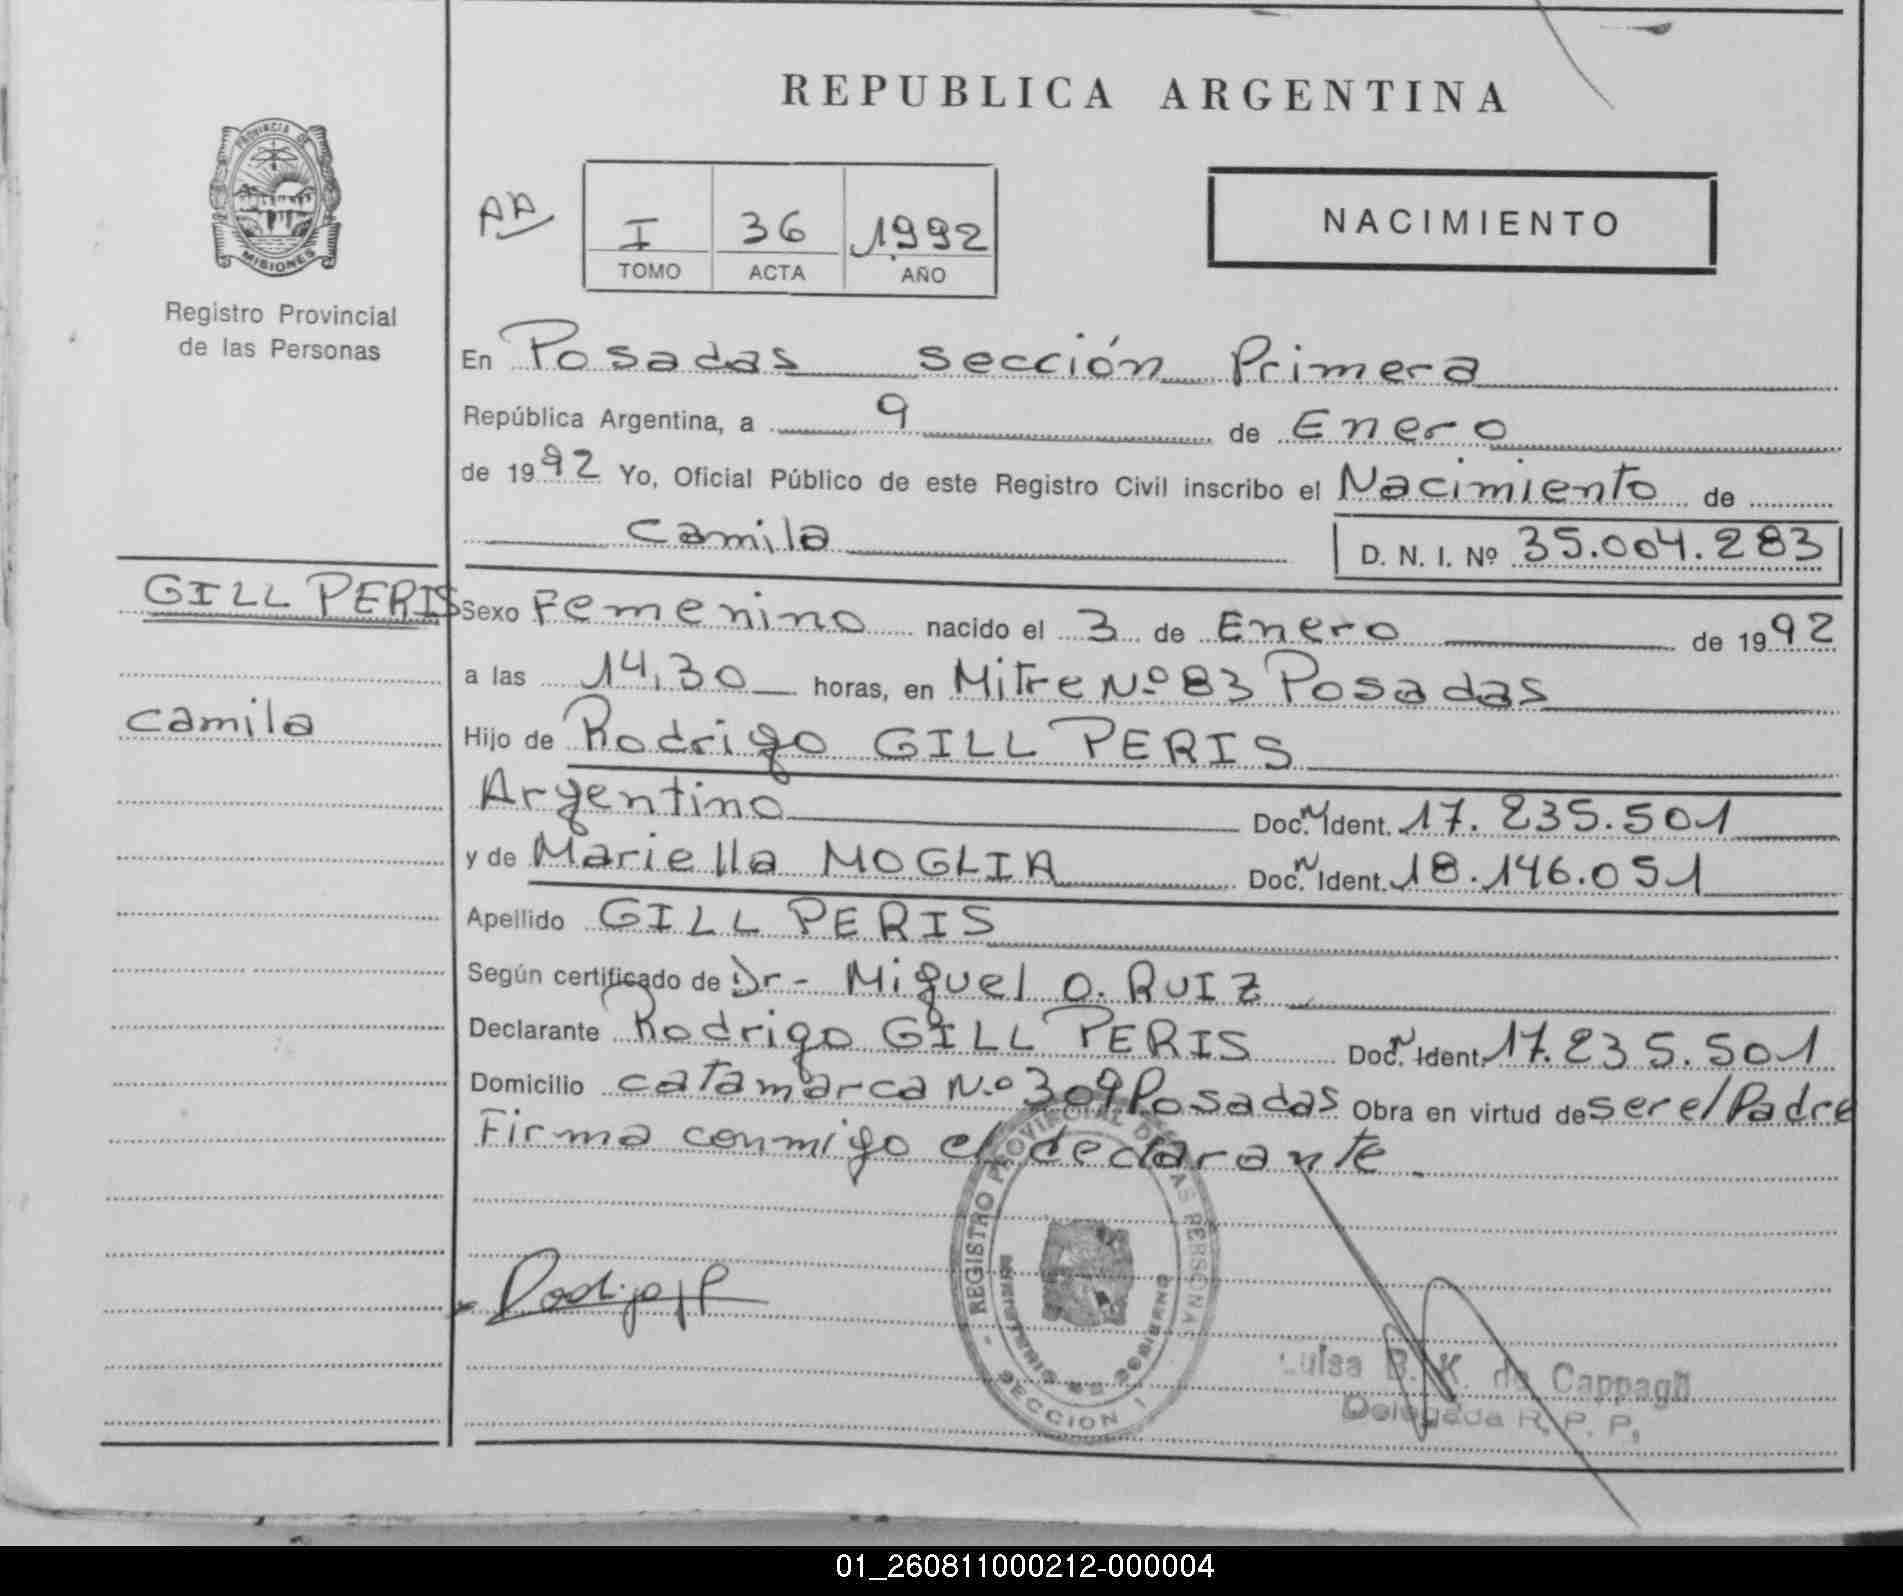 REPUBLICA ARGENTINA
PROVINCIA DE
MISIONES
Registro Provincial
de las Personas
AA
I 36 1992
TOMO ACTA AÑO
NACIMIENTO
En Posadas sección Primera
República Argentina, a 9 de Enero
de 1992 Yo, Oficial Público de este Registro Civil inscribo el Nacimiento de
Camila D. N. I. Nº 35.004.283
GILL PERIS
Camila
Sexo Femenino nacido el 3 de Enero de 1992
a las 14,30 horas, en Mitre Nº 83 Posadas
Hijo de Rodrigo GILL PERIS
Argentino Doc. N Ident. 17.235.501
y de Mariella MOGLIA Doc. N Ident. 18.146.051
Apellido GILL PERIS
Según certificado de Dr- Miguel O. RUIZ
Declarante Rodrigo GILL PERIS Doc. N Ident. 17.235.501
Domicilio catamarca N.º 309 Posadas Obra en virtud de ser el Padre
Firma conmigo el declarante.
REGISTRO PROVINCIAL DE LAS PERSONAS
MINISTERIO DE GOBIERNO
SECCION 1
Luisa B. K. de Cappagli
Delegada R. P. P.
01_260811000212-000004